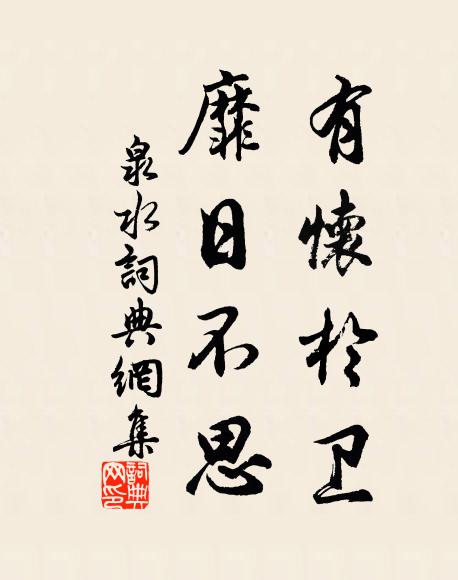 有懷於卫
靡日不思
泉水詞典網集
詞典
网印